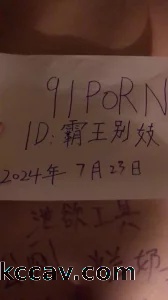 91PORN
ID:霸王别妓
2024年 7月23日
工具
kccav.c